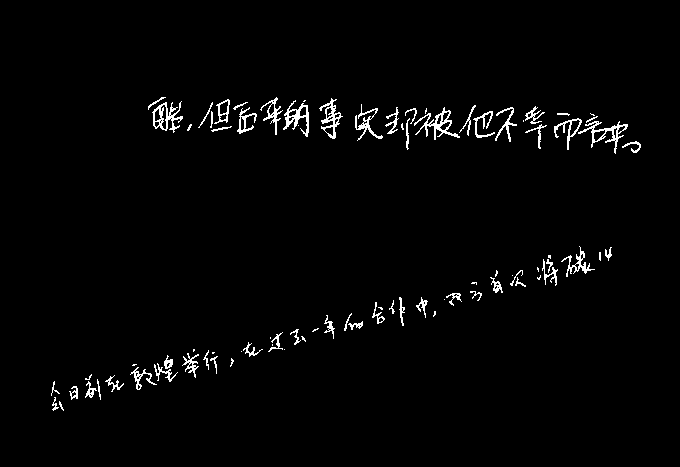 醒,但后来的事实却被他不幸而言中。
会日前在敦煌举行,在过去一年的合作中,双方首次将碳14